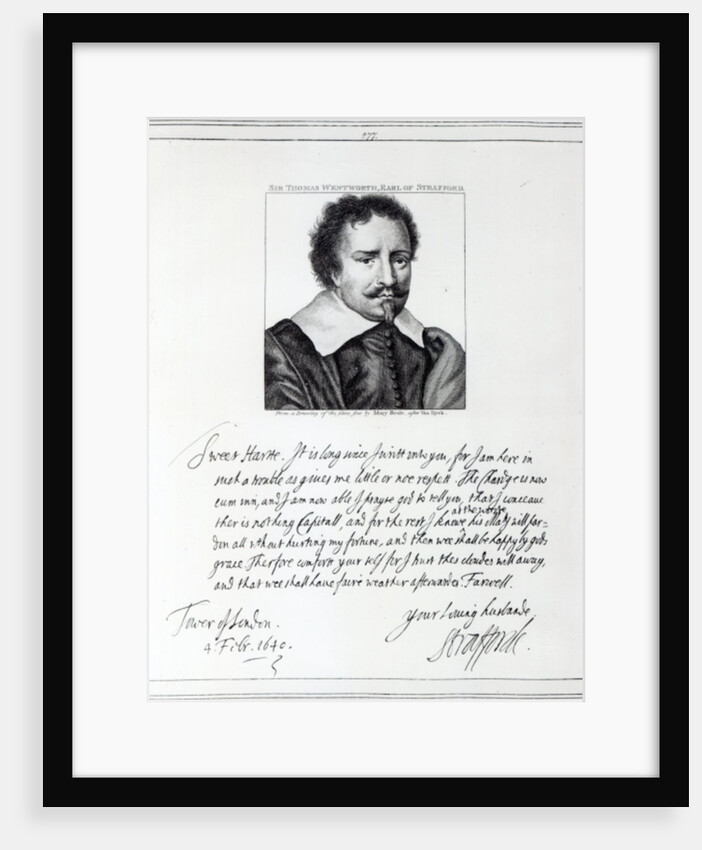 277.
SIR THOMAS WENTWORTH, EARL OF STRAFFORD.
From a Drawing of the same size by Mary Beale, after Van Dyck.
Sweet Harte. It is long since I writt unto you, for I am here in
such a trouble as gives me little or noe respett. The Chardge is now
cum inn, and I am now able I prayse god to tell you, that I conceaue
ther is nothing Capitall, and for the rest I knowe
at the worste
his Ma:ty will par=
don all without hurting my fortune, and then wee shall be happy by gods
grace. Therfore comfort your self for I trust thes cloudes will away,
and that wee shall haue faire weather afterwardes. Farwell.
Your louing husbande
Tower of London.
4. Febr. 1640.
Strafforde.